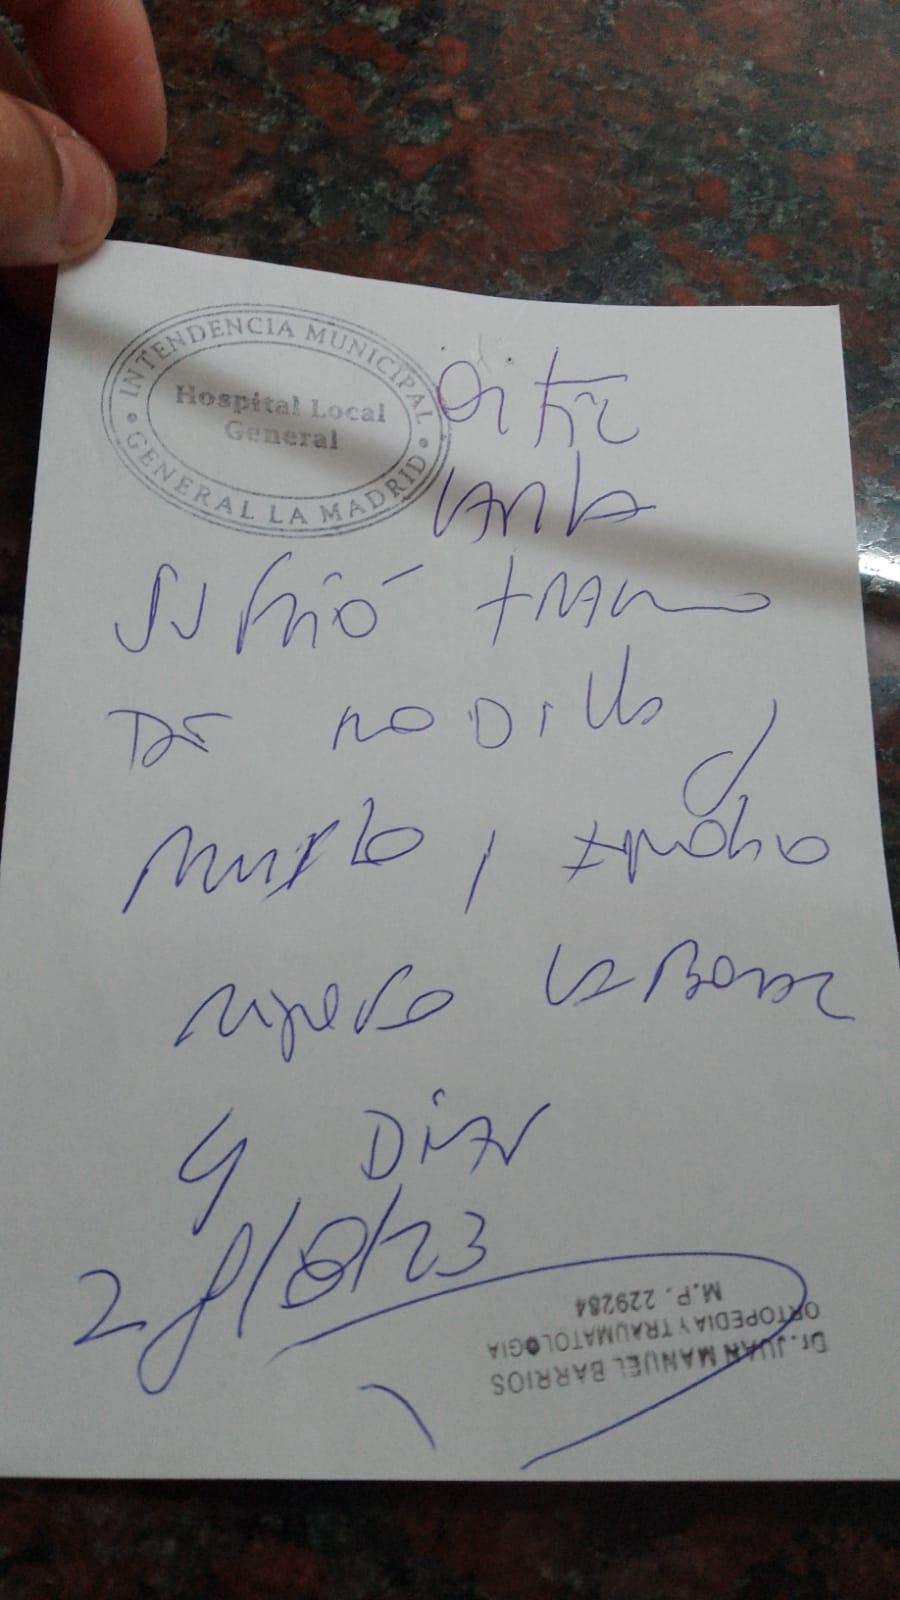 INTENDENCIA MUNICIPAL
Hospital Local
General
GENERAL LA MADRID
SUFRIÓ
DE RODILLA y
MUSLO,
REPOSO LABORAL
4 DIAS
28/8/23
Dr. JUAN MANUEL BARRIOS
ORTOPEDIA Y TRAUMATOLOGIA
M.P. 229284